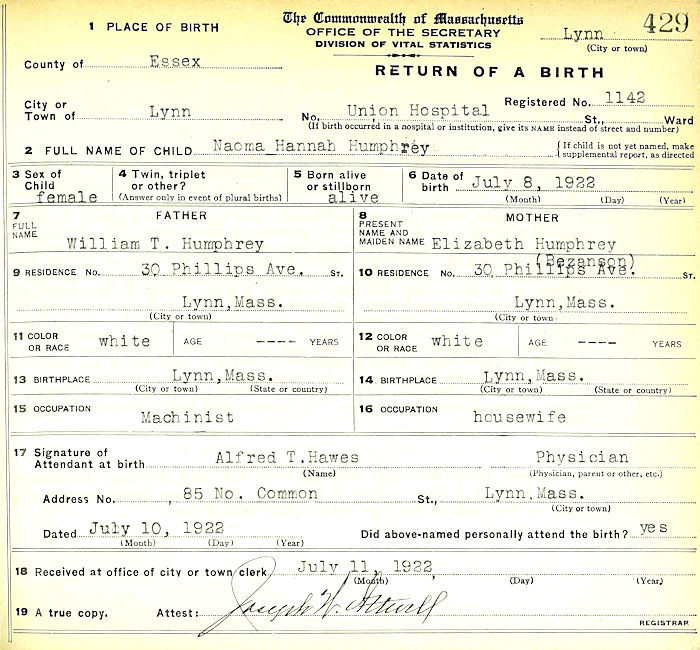 The Commonwealth of Massachusetts
1 PLACE OF BIRTH OFFICE OF THE SECRETARY Lynn 429
DIVISION OF VITAL STATISTICS (City or town)
County of Essex
RETURN OF A BIRTH
Registered No. 1142
City or
Town of Lynn No. Union Hospital St., Ward
(If birth occurred in a hospital or institution, give its NAME instead of street and number)
2 FULL NAME OF CHILD Naoma Hannah Humphrey { If child is not yet named, make
supplemental report, as directed
3 Sex of 4 Twin, triplet 5 Born alive 6 Date of
Child or other? or stillborn birth July 8, 1922
female (Answer only in event of plural births) alive (Month) (Day) (Year)
7 FATHER 8 MOTHER
FULL PRESENT
NAME NAME AND
William T. Humphrey MAIDEN NAME Elizabeth Humphrey
(Bezanson)
9 RESIDENCE No. 30 Phillips Ave. ST. 10 RESIDENCE No. 30 Phillips Ave. ST.
Lynn,Mass. Lynn,Mass.
(City or town) (City or town
11 COLOR white AGE ---- YEARS 12 COLOR white AGE ---- YEARS
OR RACE OR RACE
13 BIRTHPLACE Lynn,Mass. 14 BIRTHPLACE Lynn,Mass.
(City or town) (State or country) (City or town) (State or country)
15 OCCUPATION 16 OCCUPATION
Machinist housewife
17 Signature of
Attendant at birth Alfred T.Hawes Physician
(Name) (Physician, parent or other, etc.)
Address No. , 85 No. Common St., Lynn,Mass.
(City or town)
Dated July 10, 1922 Did above-named personally attend the birth? yes
(Month) (Day) (Year)
18 Received at office of city or town clerk July 11, 1922
(Month) (Day) (Year)
19 A true copy. Attest: Joseph W. Attwill
REGISTRAR